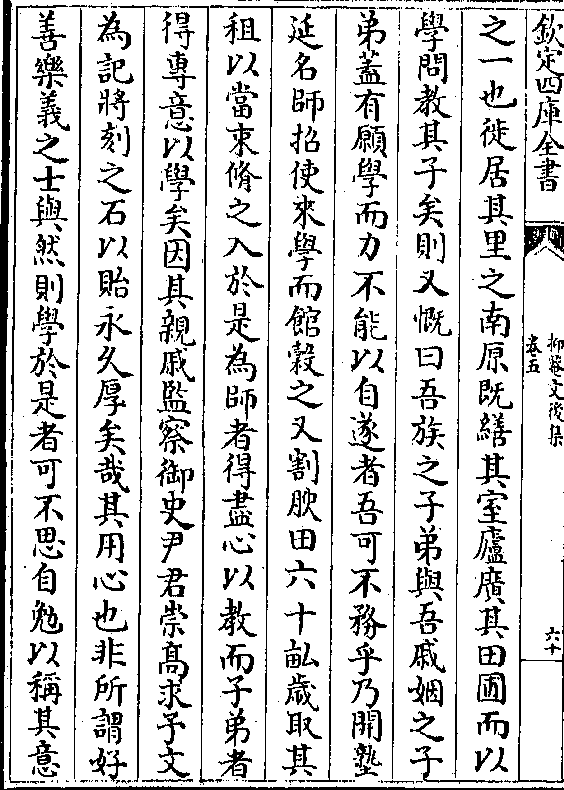 欽定四庫全書
抑菴文後集
卷五
六十
之一也徙居其里之南原既繕其室廬廣其田圃而以
學問教其子矣則又慨曰吾族之子弟與吾戚姻之子
弟蓋有願學而力不能以自遂者吾可不務乎乃開塾
延名師招使來學而館穀之又割腴田六十畝歲取其
租以當束脩之入於是為師者得盡心以教而子弟者
得專意以學矣因其親戚監察御史尹君崇髙求予文
為記將刻之石以貽永久厚矣哉其用心也非所謂好
善樂義之士與然則學於是者可不思自勉以稱其意